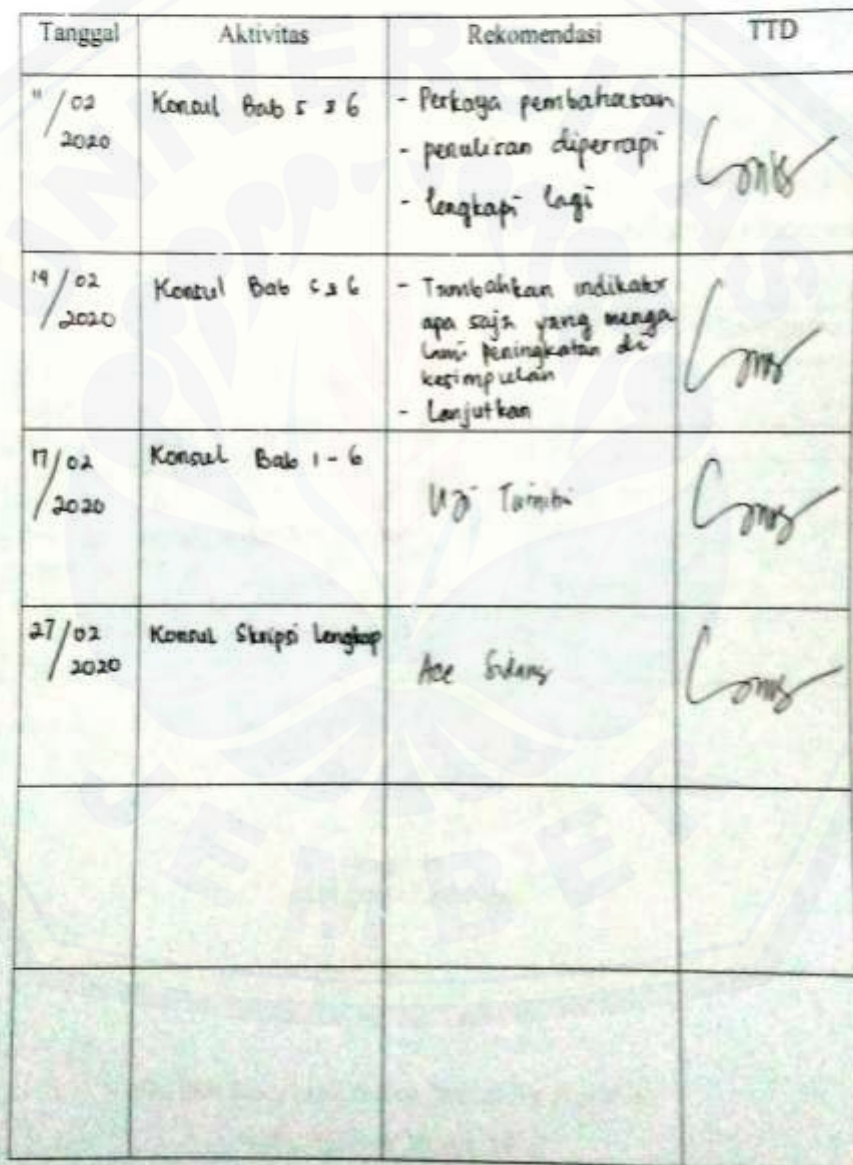 Tanggal Aktivitas Rekomendasi TTD
11/02 2020 Konsul Bab 5 & 6 - Perkaya pembahasan
- penulisan diperrapi
- lengkapi lagi
14/02 2020 Konsul Bab 5 & 6 - Tambahkan indikator
apa saja yang menga
lami peningkatan di
kesimpulan
- Lanjutkan
17/02 2020 Konsul Bab 1 - 6
27/02 2020 Konsul Skripsi Lengkap Acc Sidang
UNIVERSITAS
JEMBER